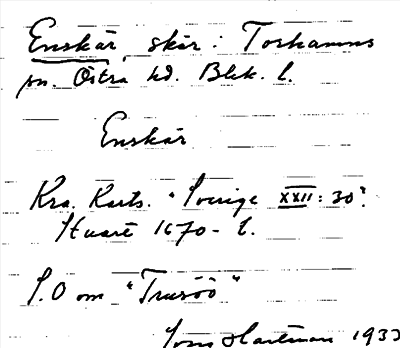 Enskär, skär i Torhamns
sn. Östra hd. Blek. l.
Enskär
Kra. Kartv. "Sverige XXII: 30".
Stuart 1670-t.
S.O om "Trusöö"
Hartman 193